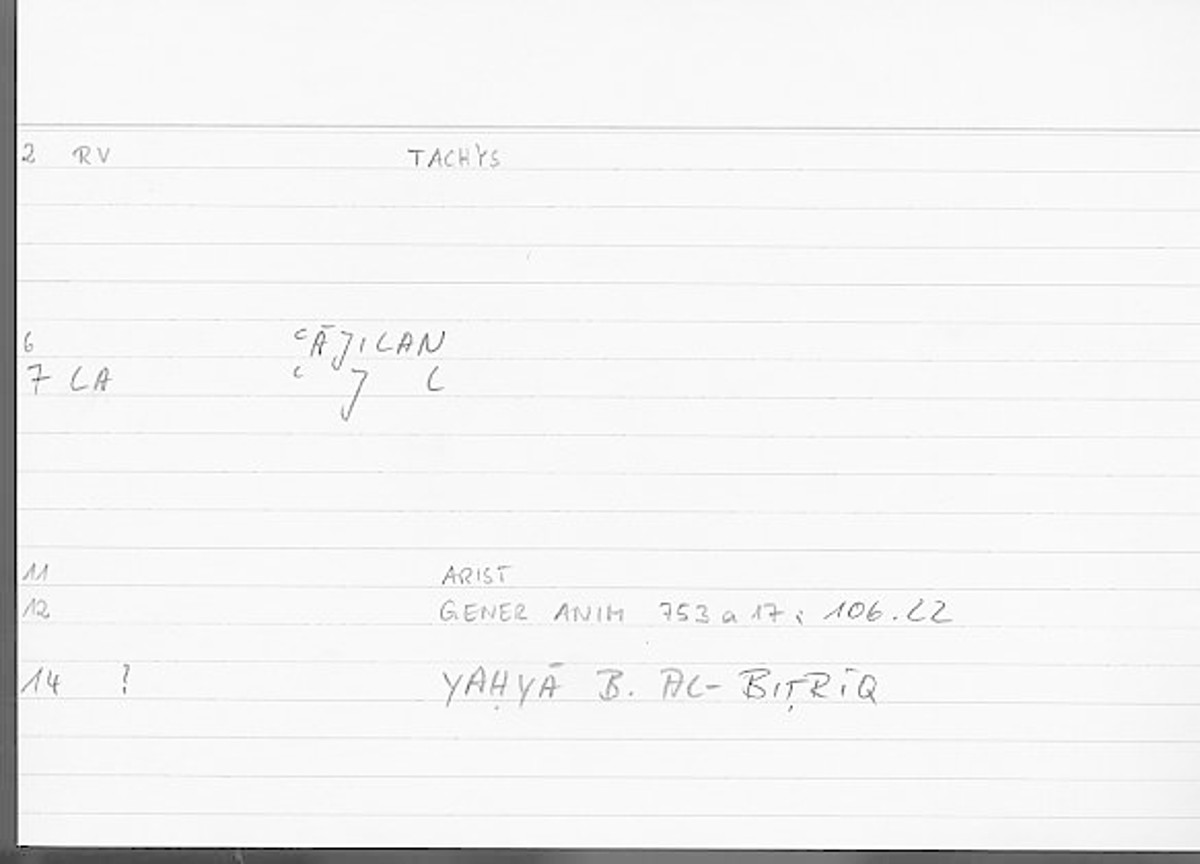 2 RV TACHÝS
6 ʿĀJILAN
7 LA ʿ J L
11 ARIST
12 GENER ANIM 753 a 17 ; 106.22
14 ? YAḤYĀ B. AL-BIṬRĪQ